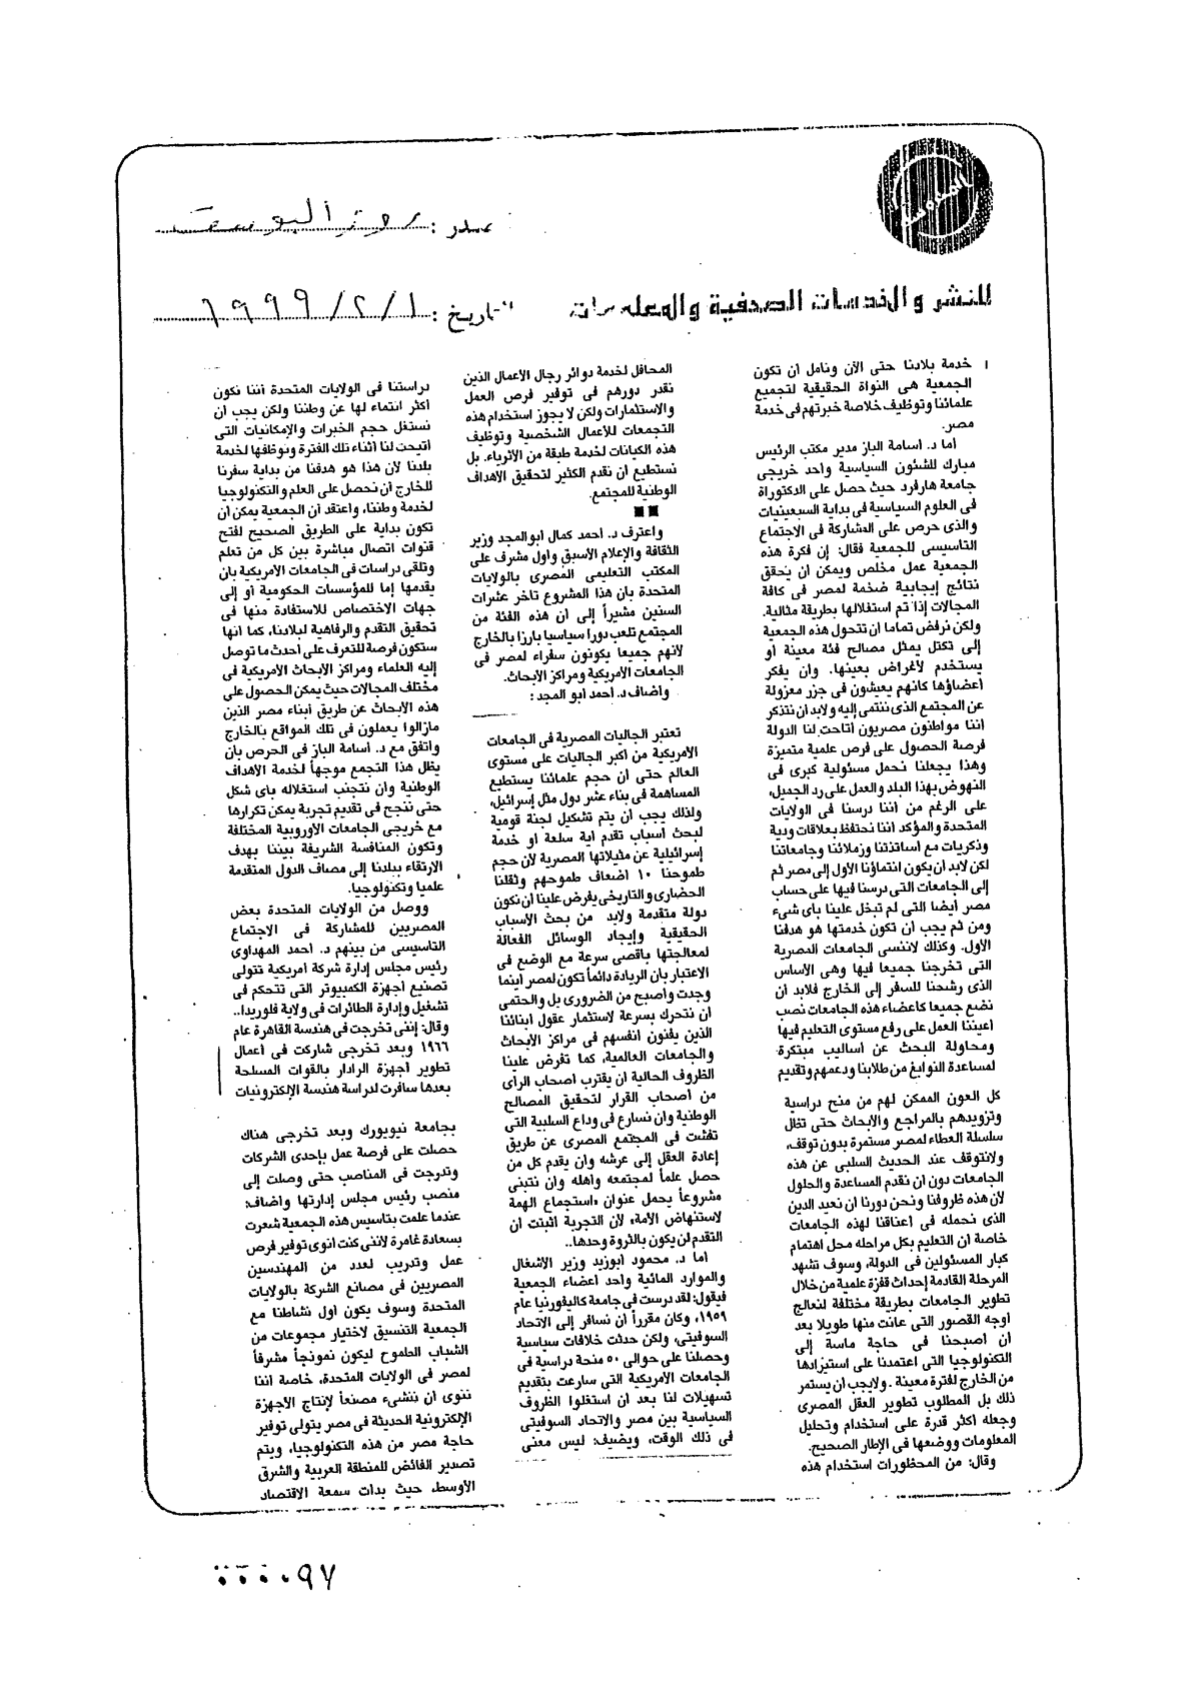 للنشر والخدمات الصحفية والمعلومات
تاريخ : ١ / ٢ / ١٩٩٩
خدمة بلادنا حتى الآن ونأمل أن تكون
الجمعية هى النواة الحقيقية لتجميع
علمائنا وتوظيف خلاصة خبرتهم فى خدمة
مصر.
أما د. أسامة الباز مدير مكتب الرئيس
مبارك للشئون السياسية وأحد خريجى
جامعة هارفرد حيث حصل على الدكتوراة
فى العلوم السياسية فى بداية السبعينيات
والذى حرص على المشاركة فى الاجتماع
التأسيسى للجمعية فقال: إن فكرة هذه
الجمعية عمل مخلص ويمكن أن يحقق
نتائج إيجابية ضخمة لمصر فى كافة
المجالات إذا تم استغلالها بطريقة مثالية.
ولكن نرفض تماما أن تتحول هذه الجمعية
إلى تكتل يمثل مصالح فئة معينة أو
يستخدم لأغراض بعينها. وأن يفكر
أعضاؤها كأنهم يعيشون فى جزر معزولة
عن المجتمع الذى ننتمى إليه ولابد أن نتذكر
أننا مواطنون مصريون أتاحت لنا الدولة
فرصة الحصول على فرص علمية متميزة
وهذا يجعلنا نحمل مسئولية كبرى فى
النهوض بهذا البلد والعمل على رد الجميل،
على الرغم من أننا درسنا فى الولايات
المتحدة والمؤكد أننا نحتفظ بعلاقات ودية
وذكريات مع أساتذتنا وزملائنا وجامعاتنا
لكن لابد أن يكون انتماؤنا الأول إلى مصر ثم
إلى الجامعات التى درسنا فيها على حساب
مصر أيضا التى لم تبخل علينا بأى شىء
ومن ثم يجب أن تكون خدمتها هو هدفنا
الأول. وكذلك لاننسى الجامعات المصرية
التى تخرجنا جميعا فيها وهى الأساس
الذى رشحنا للسفر إلى الخارج فلابد أن
نضع جميعا كأعضاء هذه الجامعات نصب
أعيننا العمل على رفع مستوى التعليم فيها
ومحاولة البحث عن أساليب مبتكرة
لمساعدة النوابغ من طلابنا ودعمهم وتقديم
كل العون الممكن لهم من منح دراسية
وتزويدهم بالمراجع والأبحاث حتى تظل
سلسلة العطاء لمصر مستمرة بدون توقف،
ولانتوقف عند الحديث السلبى عن هذه
الجامعات دون أن نقدم المساعدة والحلول
لأن هذه ظروفنا ونحن دورنا أن نعيد الدين
الذى نحمله فى أعناقنا لهذه الجامعات
خاصة أن التعليم بكل مراحله محل اهتمام
كبار المسئولين فى الدولة، وسوف تشهد
المرحلة القادمة إحداث قفزة علمية من خلال
تطوير الجامعات بطريقة مختلفة لنعالج
أوجه القصور التى عانت منها طويلا بعد
أن أصبحنا فى حاجة ماسة إلى
التكنولوجيا التى اعتمدنا على استيرادها
من الخارج لفترة معينة. ولايجب أن يستمر
ذلك بل المطلوب تطوير العقل المصرى
وجعله أكثر قدرة على استخدام وتحليل
المعلومات ووضعها فى الإطار الصحيح.
وقال: من المحظورات استخدام هذه
المحافل لخدمة دوائر رجال الأعمال الذين
نقدر دورهم فى توفير فرص العمل
والاستثمارات ولكن لا يجوز استخدام هذه
التجمعات للأعمال الشخصية وتوظيف
هذه الكيانات لخدمة طبقة من الأثرياء. بل
نستطيع أن نقدم الكثير لتحقيق الأهداف
الوطنية للمجتمع.
واعترف د. أحمد كمال أبوالمجد وزير
الثقافة والإعلام الأسبق وأول مشرف على
المكتب التعليمى المصرى بالولايات
المتحدة بأن هذا المشروع تأخر عشرات
السنين مشيراً إلى أن هذه الفئة من
المجتمع تلعب دورا سياسيا بارزا بالخارج
لأنهم جميعا يكونون سفراء لمصر فى
الجامعات الأمريكية ومراكز الأبحاث.
وأضاف د. أحمد أبو المجد :
تعتبر الجاليات المصرية فى الجامعات
الأمريكية من أكبر الجاليات على مستوى
العالم حتى أن حجم علمائنا يستطيع
المساهمة فى بناء عشر دول مثل إسرائيل،
ولذلك يجب أن يتم تشكيل لجنة قومية
لبحث أسباب تقدم أية سلعة أو خدمة
إسرائيلية عن مثيلاتها المصرية لأن حجم
طموحنا ١٠ أضعاف طموحهم وثقلنا
الحضارى والتاريخى يفرض علينا أن نكون
دولة متقدمة ولابد من بحث الأسباب
الحقيقية وإيجاد الوسائل الفعالة
لمعالجتها بأقصى سرعة مع الوضع فى
الاعتبار بأن الريادة دائماً تكون لمصر أينما
وجدت وأصبح من الضرورى بل والحتمى
أن نتحرك بسرعة لاستثمار عقول أبنائنا
الذين يفنون أنفسهم فى مراكز الأبحاث
والجامعات العالمية، كما تفرض علينا
الظروف الحالية أن يقترب أصحاب الرأى
من أصحاب القرار لتحقيق المصالح
الوطنية وأن نسارع فى وداع السلبية التى
تفشت فى المجتمع المصرى عن طريق
إعادة العقل إلى عرشه وأن يقدم كل من
حصل علماً لمجتمعه وأهله وأن نتبنى
مشروعاً يحمل عنوان «استجماع الهمة
لاستنهاض الأمة» لأن التجربة أثبتت أن
التقدم لن يكون بالثروة وحدها..
أما د. محمود أبوزيد وزير الأشغال
والموارد المائية وأحد أعضاء الجمعية
فيقول: لقد درست فى جامعة كاليفورنيا عام
١٩٥٩، وكان مقرراً أن نسافر إلى الاتحاد
السوفيتى، ولكن حدثت خلافات سياسية
وحصلنا على حوالى ٥٠ منحة دراسية فى
الجامعات الأمريكية التى سارعت بتقديم
تسهيلات لنا بعد أن استغلوا الظروف
السياسية بين مصر والاتحاد السوفيتى
فى ذلك الوقت، ويضيف: ليس معنى
دراستنا فى الولايات المتحدة أننا نكون
أكثر انتماء لها عن وطننا ولكن يجب أن
نستغل حجم الخبرات والإمكانيات التى
أتيحت لنا أثناء تلك الفترة ونوظفها لخدمة
بلدنا لأن هذا هو هدفنا من بداية سفرنا
للخارج أن نحصل على العلم والتكنولوجيا
لخدمة وطننا، وأعتقد أن الجمعية يمكن أن
تكون بداية على الطريق الصحيح لفتح
قنوات اتصال مباشرة بين كل من تعلم
وتلقى دراسات فى الجامعات الأمريكية بأن
يقدمها إما للمؤسسات الحكومية أو إلى
جهات الاختصاص للاستفادة منها فى
تحقيق التقدم والرفاهية لبلادنا، كما أنها
ستكون فرصة للتعرف على أحدث ما توصل
إليه العلماء ومراكز الأبحاث الأمريكية فى
مختلف المجالات حيث يمكن الحصول على
هذه الأبحاث عن طريق أبناء مصر الذين
مازالوا يعملون فى تلك المواقع بالخارج
وأتفق مع د. أسامة الباز فى الحرص بأن
يظل هذا التجمع موجهاً لخدمة الأهداف
الوطنية وأن نتجنب استغلاله بأى شكل
حتى ننجح فى تقديم تجربة يمكن تكرارها
مع خريجى الجامعات الأوروبية المختلفة
وتكون المنافسة الشريفة بيننا بهدف
الارتقاء ببلدنا إلى مصاف الدول المتقدمة
علميا وتكنولوجيا.
ووصل من الولايات المتحدة بعض
المصريين للمشاركة فى الاجتماع
التأسيسى من بينهم د. أحمد المهداوى
رئيس مجلس إدارة شركة أمريكية تتولى
تصنيع أجهزة الكمبيوتر التى تتحكم فى
تشغيل وإدارة الطائرات فى ولاية فلوريدا..
وقال: إننى تخرجت فى هندسة القاهرة عام
١٩٦٦ وبعد تخرجى شاركت فى أعمال
تطوير أجهزة الرادار بالقوات المسلحة
بعدها سافرت لدراسة هندسة الإلكترونيات
بجامعة نيويورك وبعد تخرجى هناك
حصلت على فرصة عمل بإحدى الشركات
وتدرجت فى المناصب حتى وصلت إلى
منصب رئيس مجلس إدارتها وأضاف:
عندما علمت بتأسيس هذه الجمعية شعرت
بسعادة غامرة لأننى كنت أنوى توفير فرص
عمل وتدريب لعدد من المهندسين
المصريين فى مصانع الشركة بالولايات
المتحدة وسوف يكون أول نشاطنا مع
الجمعية التنسيق لاختيار مجموعات من
الشباب الطموح ليكون نموذجاً مشرفاً
لمصر فى الولايات المتحدة، خاصة أننا
ننوى أن ننشىء مصنعاً لإنتاج الأجهزة
الإلكترونية الحديثة فى مصر يتولى توفير
حاجة مصر من هذه التكنولوجيا، ويتم
تصدير الفائض للمنطقة العربية والشرق
الأوسط، حيث بدأت سمعة الاقتصاد